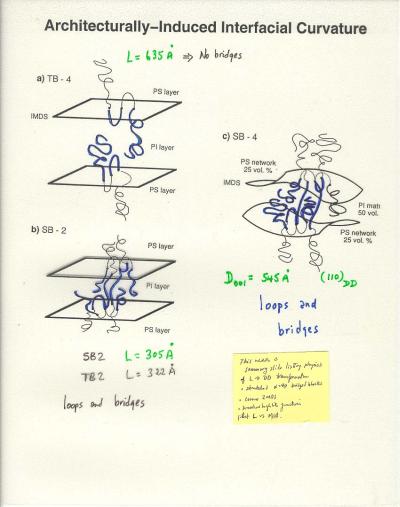 Architecturally–Induced Interfacial Curvature
L = 635 Å ⇒ No bridges
a) TB - 4
PS layer
IMDS
PI layer
PS layer
b) SB - 2
PS layer
PI layer
PS layer
SB2 L = 305 Å
TB2 L = 322 Å
loops and bridges
c) SB - 4
PS network
25 vol. %
IMDS
PI mat
50 vol.
PS network
25 vol. %
D001 = 545 Å (110)DD
loops and
bridges
This needs a
summary slide listing physics
of L → DD transformation
• stretched bridged blocks
• IMDS
• junction
plot L vs